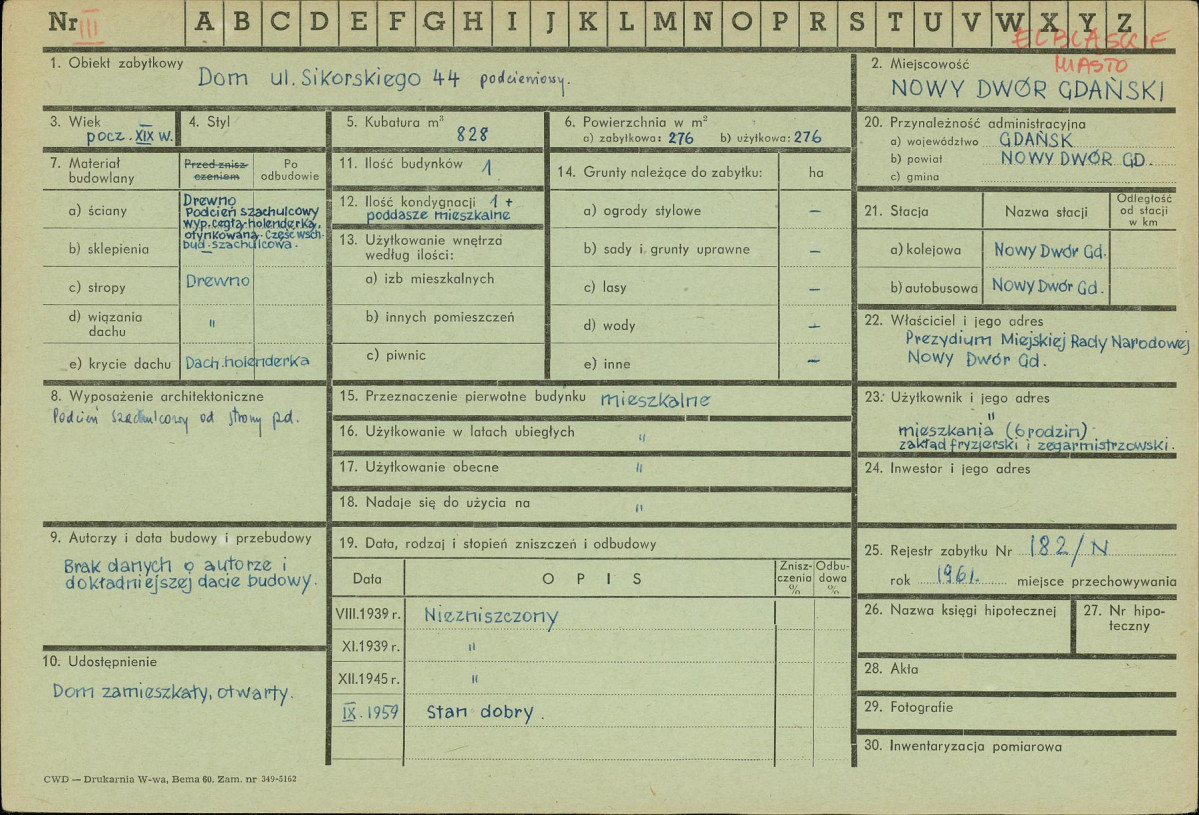 Nr III A B C D E F G H I J K L M N O P R S T U V W X Y Z
ELBLĄSKIE
MIASTO
1. Obiekt zabytkowy Dom ul. Sikorskiego 44 podcieniowy.
2. Miejscowość
NOWY DWÓR GDAŃSKI
3. Wiek
pocz. XIX w.
4. Styl
5. Kubatura m³
828
6. Powierzchnia w m²
a) zabytkowa: 276 b) użytkowa: 276
20. Przynależność administracyjna
a) województwo GDAŃSK
b) powiat NOWY DWÓR GD.
c) gmina
7. Materiał
budowlany
Przed znisz-
czeniem
Po
odbudowie
a) ściany
Drewno
Podcień szachulcowy
wyp. cegłą-holenderką,
otynkowaną. Część wsch.
bud. szachulcowa.
b) sklepienia —
c) stropy Drewno
d) wiązania
dachu "
e) krycie dachu Dach. holenderka
11. Ilość budynków 1
12. Ilość kondygnacji 1 +
poddasze mieszkalne
13. Użytkowanie wnętrza
według ilości:
a) izb mieszkalnych
b) innych pomieszczeń
c) piwnic
14. Grunty należące do zabytku: ha
a) ogrody stylowe —
b) sady i grunty uprawne —
c) lasy —
d) wody —
e) inne —
21. Stacja Nazwa stacji
Odległość
od stacji
w km
a) kolejowa Nowy Dwór Gd.
b) autobusowa Nowy Dwór Gd.
22. Właściciel i jego adres
Prezydium Miejskiej Rady Narodowej
Nowy Dwór Gd.
8. Wyposażenie architektoniczne
Podcień szachulcowy od strony pd.
15. Przeznaczenie pierwotne budynku mieszkalne
16. Użytkowanie w latach ubiegłych "
17. Użytkowanie obecne "
18. Nadaje się do użycia na "
23. Użytkownik i jego adres
"
mieszkania (6 rodzin)
zakład fryzjerski i zegarmistrzowski.
24. Inwestor i jego adres
9. Autorzy i data budowy i przebudowy
Brak danych o autorze i
dokładniejszej dacie budowy.
10. Udostępnienie
Dom zamieszkały, otwarty.
19. Data, rodzaj i stopień zniszczeń i odbudowy
Data OPIS
Znisz-
czenia
%
Odbu-
dowa
%
VIII.1939 r. Niezniszczony
XI.1939 r. "
XII.1945 r. "
IX.1959 Stan dobry.
25. Rejestr zabytku Nr 182/N
rok 1961. miejsce przechowywania
26. Nazwa księgi hipotecznej
27. Nr hipo-
teczny
28. Akta
29. Fotografie
30. Inwentaryzacja pomiarowa
CWD — Drukarnia W-wa, Bema 60. Zam. nr 349-5162